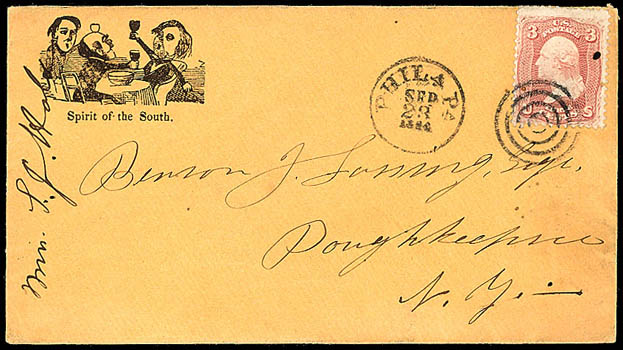 Spirit of the South.
PHILA PA
SEP
23
U.S. POSTAGE
3 3
Benson J. Lossing, Esq.
Poughkeepsie
N. Y.
S. J.